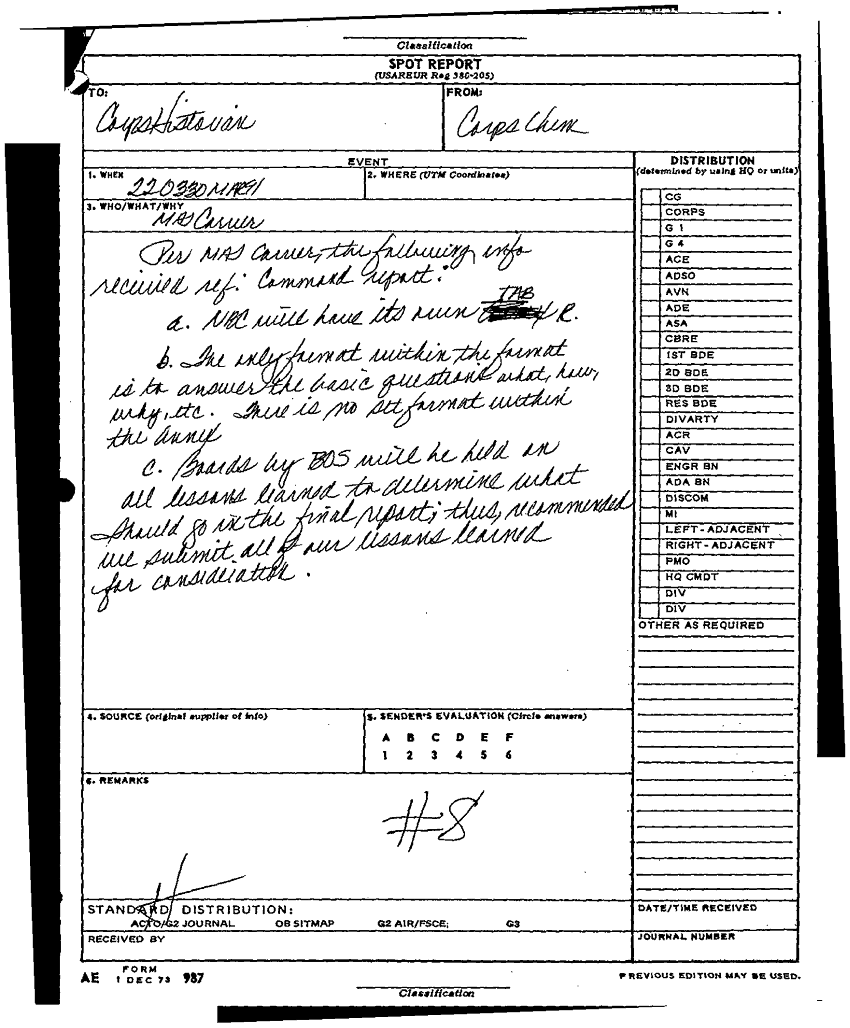 Classification
SPOT REPORT
(USAREUR Reg 380-205)
TO:
Corps Historian
FROM:
Corps Chem
EVENT
1. WHEN
220330MAR91
2. WHERE (UTM Coordinates)
3. WHO/WHAT/WHY
MAJ Carrier
Per MAJ Carrier, the following info
received ref: Command report:
a. NBC will have its own TAB R.
b. The only format within the format
is to answer the basic questions what, how,
why, etc. There is no set format within
the annex
c. Boards by BOS will be held on
all lessons learned to determine what
should go in the final report; thus, recommended
we submit all of our lessons learned
for consideration.
DISTRIBUTION
(determined by using HQ or units)
CG
CORPS
G 1
G 4
ACE
ADSO
AVN
ADE
ASA
CBRE
1ST BDE
2D BDE
3D BDE
RES BDE
DIVARTY
ACR
CAV
ENGR BN
ADA BN
DISCOM
MI
LEFT-ADJACENT
RIGHT-ADJACENT
PMO
HQ CMDT
DIV
DIV
OTHER AS REQUIRED
4. SOURCE (original supplier of info)
5. SENDER'S EVALUATION (Circle answers)
A B C D E F
1 2 3 4 5 6
6. REMARKS
#8
STANDARD DISTRIBUTION:
G2 JOURNAL OB SITMAP G2 AIR/FSCE; G3
RECEIVED BY
DATE/TIME RECEIVED
JOURNAL NUMBER
AE FORM 1 DEC 73 987
PREVIOUS EDITION MAY BE USED.
Classification